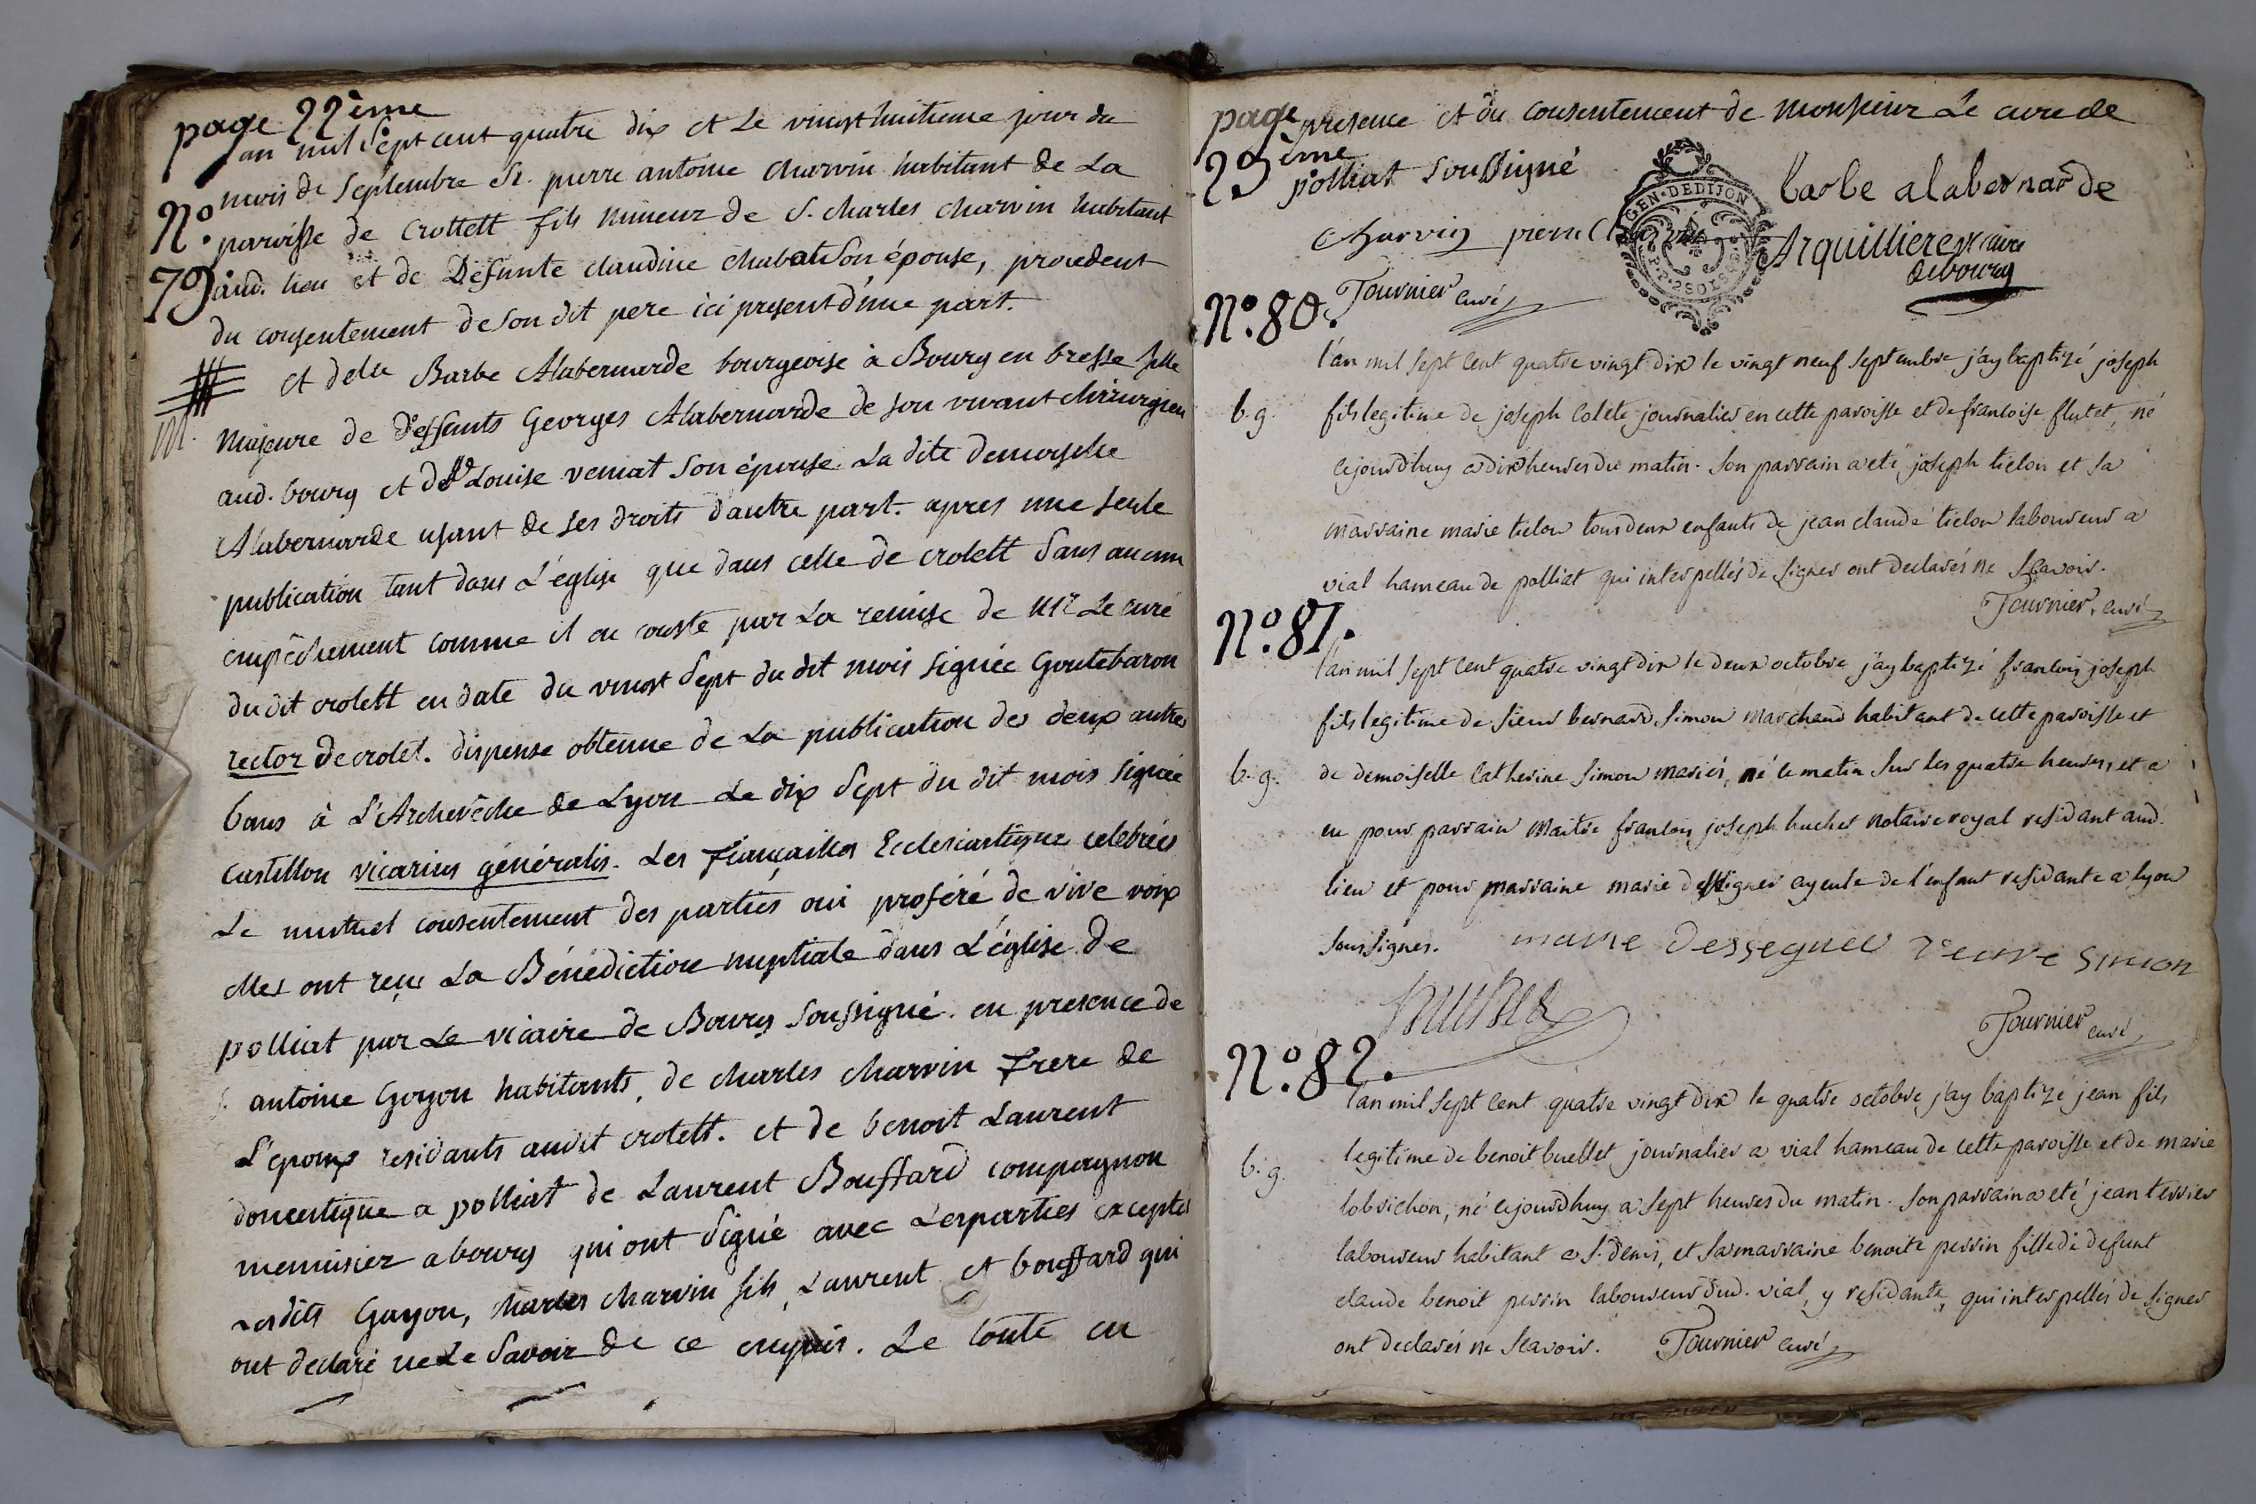 page 22ème
an mil Sept cent quatre dix et Le vingt huitieme jour du
mois de Septembre Sr. pierre antoine charvin habitant de La
No. paroisse de Crottett fils mineur de S. charles charvin habitant
79 aud. lieu et de Défunte claudine chabat Son épouse, procedent
du consentement de Son dit pere ici present d'une part.
et delle Barbe Alabernarde bourgeoise à Bourg en bresse fille
m. majeure de deffunts Georges Alabernarde de son vivant chirurgien
aud. bourg et de Louise veniat Son épouse. La dite demoiselle
Alabernarde usant de ses droits d'autre part. apres une seule
publication tant dans L'église que dans celle de crolett Sans aucun
empêchement comme il en conste par La remise de Mr Le curé
du dit crolett en date du vingt Sept du dit mois signée Goutebaron
rector de crolet. dispense obtenue de La publication des deux autres
bans à L'Archevêche de Lyon Le dix Sept du dit mois signée
Castillon vicarius généralis. Les fiançailles Ecclesiastique celebrées
Le mutuel consentement des parties oui proféré de vive voix
elles ont reçu La Bénédiction nuptiale dans L'église de
polliat par Le vicaire de Bourg soussigné. en presence de
antoine Goyon habitants, de charles charvin frere de
L'epoux residants audit crolett. et de benoit Laurent
domestique a polliat de Laurent Bouffard compagnon
menuisier a bourg qui ont Signé avec Les parties exceptés
Lesdits Goyon, charles charvin fils, Laurent et bouffard qui
ont declaré ne Le Savoir de ce enquis. Le toute en
page presence et du consentement de Monsieur Le curé de
23ème polliat Soussigné
GEN. DE DIJON
barbe alabernarde
Charvin pierre Charvin
Arquilliere vicaire
de bourg
Tournier curé
No. 80.
l'an mil sept cent quatre vingt dix le vingt neuf septembre j'ay baptizé joseph
b. g. fils legitime de joseph Colete journalier en cette paroisse et de francoise flutet, né
cejourd'huy a dix heures du matin. Son parrain a eté joseph ticlon et sa
marraine marie ticlon tous deux enfants de jean claude ticlon laboureur a
vial hameau de polliat qui interpellés de signer ont declarés ne Scavoir.
Tournier, curé
No. 81.
l'an mil sept cent quatre vingt dix le deux octobre j'ay baptizé francois joseph
fils legitime de sieur bernard Simon marchand habitant de cette paroisse et
b. g. de demoiselle Catherine Simon mariés, né le matin sur les quatre heures, et a
eu pour parrain maitre francois joseph huchet notaire royal residant aud.
lieu et pour marraine marie dessigner ayeule de l'enfant residante a lyon
soussignés. marie desseguer veuve simon
huchet
Tournier curé
No. 82.
l'an mil sept cent quatre vingt dix le quatre octobre j'ay baptizé jean fils
b. g. legitime de benoit buellet journalier a vial hameau de cette paroisse et de marie
lobrichon, né cejourd'huy a sept heures du matin. Son parrain a eté jean terrier
laboureur habitant a St. denis, et sa marraine benoite perrin fille de defunt
claude benoit perrin laboureur dud. vial, y residante, qui interpellés de signer
ont declarés ne Scavoir. Tournier curé